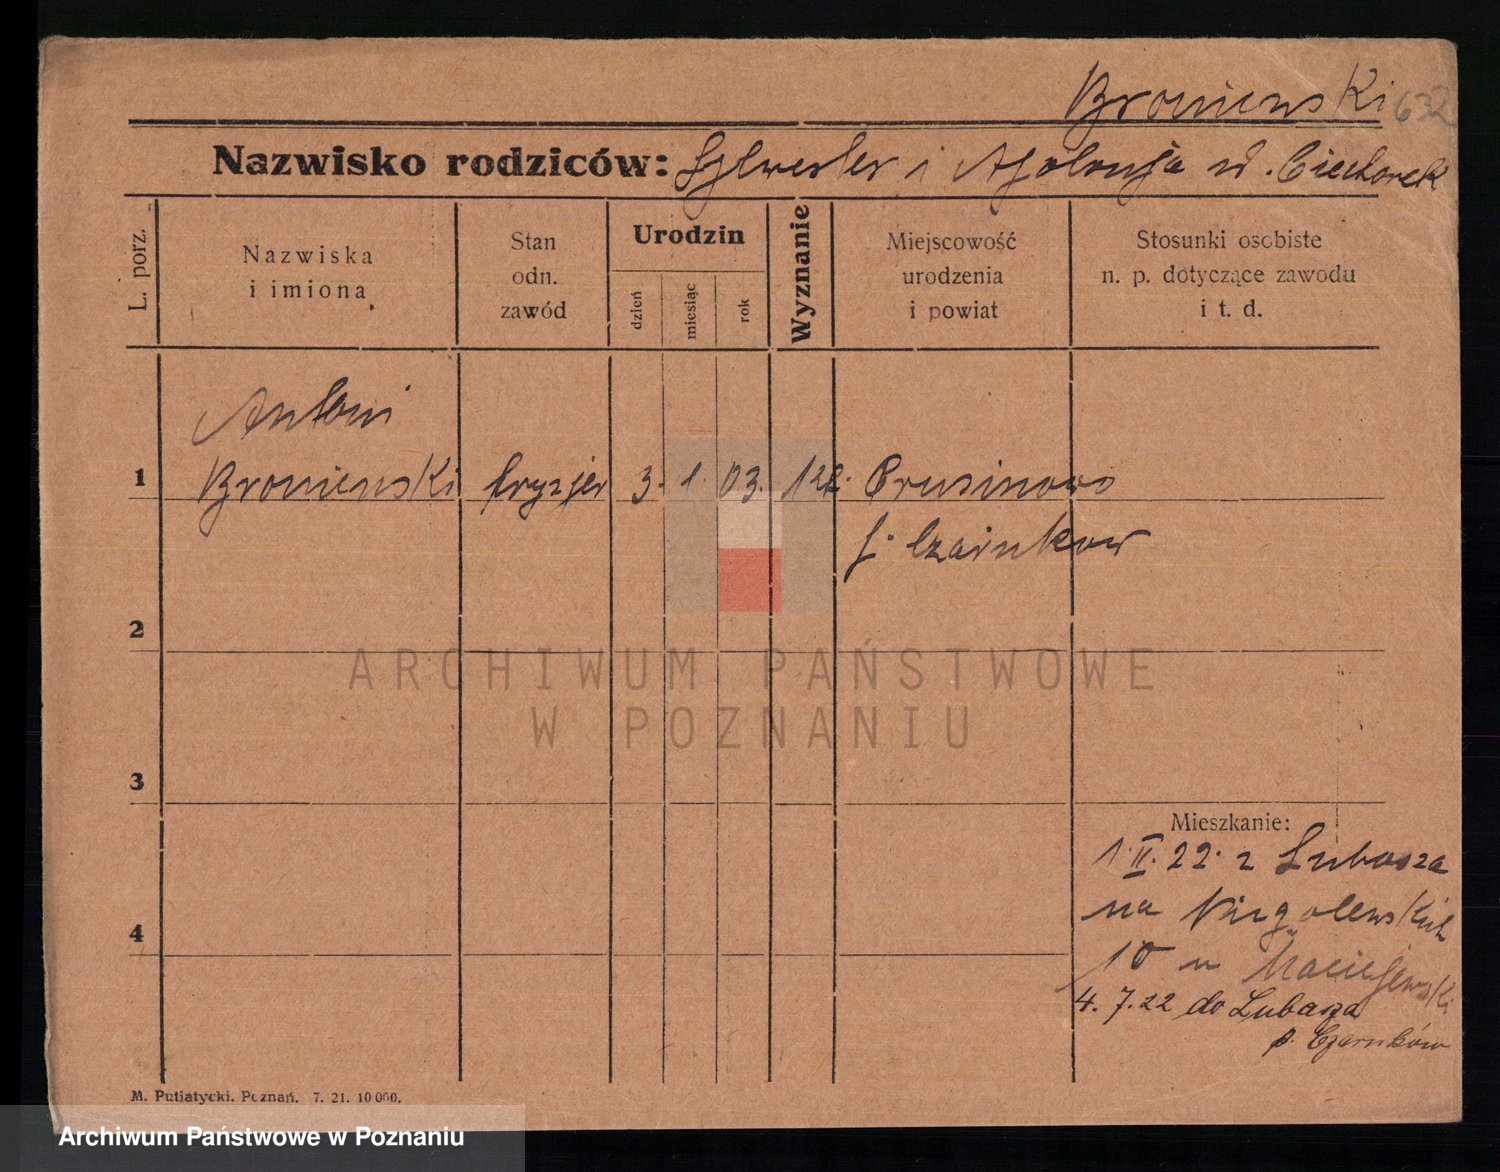 Broniewski 632
Nazwisko rodziców: Sylwester i Apolonja ur. Ciechorek
L. porz.
Nazwiska
i imiona
Stan
odn.
zawód
Urodzin
dzień
miesiąc
rok
Wyznanie
Miejscowość
urodzenia
i powiat
Stosunki osobiste
n. p. dotyczące zawodu
i t. d.
Antoni
1 Broniewski fryzjer 3. 1. 03. Prusinowo
p. Czarnkow
2
3
4
ARCHIWUM PAŃSTWOWE
W POZNANIU
Mieszkanie:
1.II.22. z Lubasza
na Niegolewskich
10 u Maciejewski
4. 7.22 do Lubasza
p. Czarnków
M. Putiatycki. Poznań. 7. 21. 10 000.
Archiwum Państwowe w Poznaniu